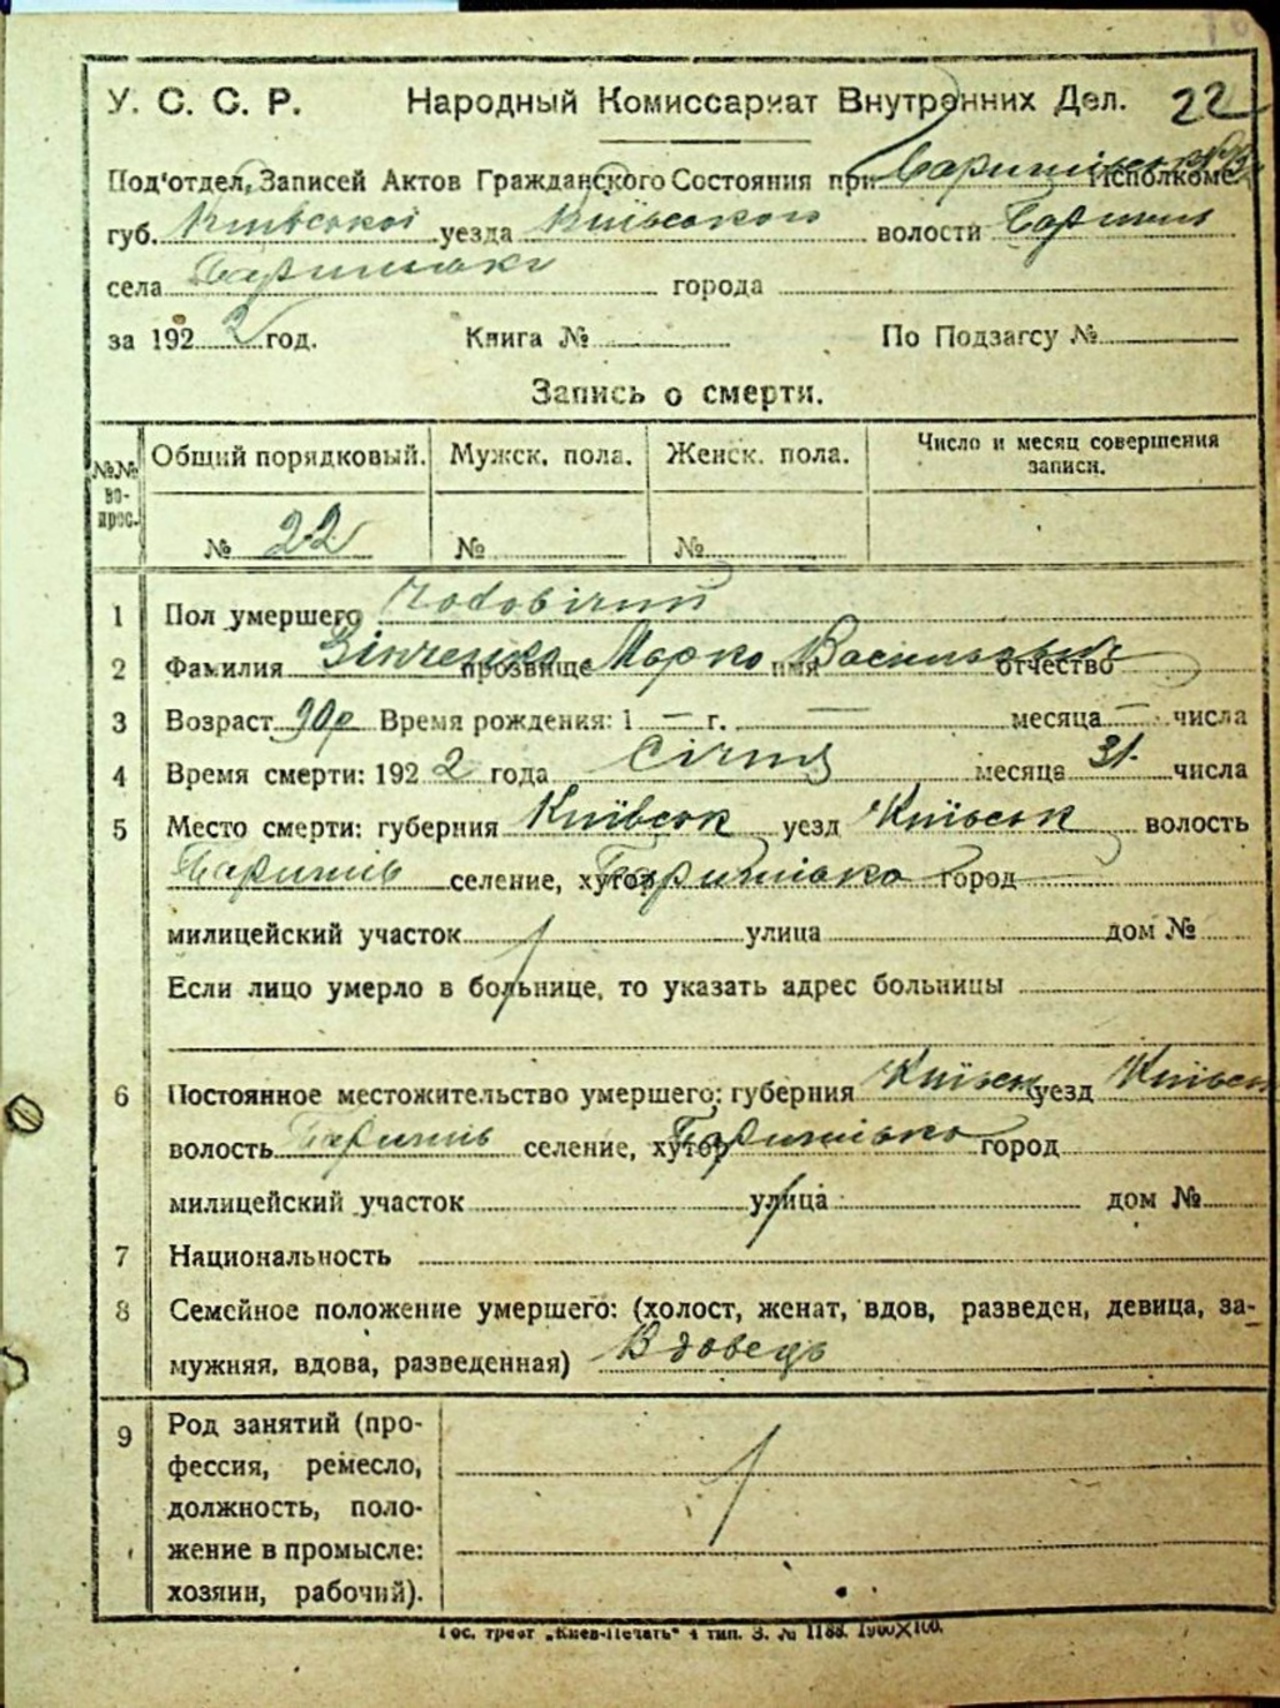 У. С. С. Р. Народный Комиссариат Внутренних Дел. 22
Под'отдел Записей Актов Гражданского Состояния при Исполкоме
губ. Київської уезда Київського волости Баришів
села Баришівки города
за 1922 год. Книга № По Подзагсу №
Запись о смерти.
№№ вопрос. Общий порядковый. Мужск. пола. Женск. пола. Число и месяц совершения записи.
№ 22 № №
1 Пол умершего чоловічий
2 Фамилия Зінченко прозвище Марко имя Васильович отчество
3 Возраст 90р Время рождения: 1 — г. — месяца — числа
4 Время смерти: 1922 года Січня месяца 31 числа
5 Место смерти: губерния Київськ уезд Київськ волость
Баришів селение, хутор Баришівка город
милицейский участок улица дом №
Если лицо умерло в больнице, то указать адрес больницы
6 Постоянное местожительство умершего: губерния Київськ уезд Київськ
волость Баришів селение, хутор Баришівка город
милицейский участок улица дом №
7 Национальность
8 Семейное положение умершего: (холост, женат, вдов, разведен, девица, за-
мужняя, вдова, разведенная) Вдовець
9 Род занятий (про-
фессия, ремесло,
должность, поло-
жение в промысле:
хозяин, рабочий).
Гос. трест „Киев-Печать" 4 тип. З. № 1188. 1900×100.